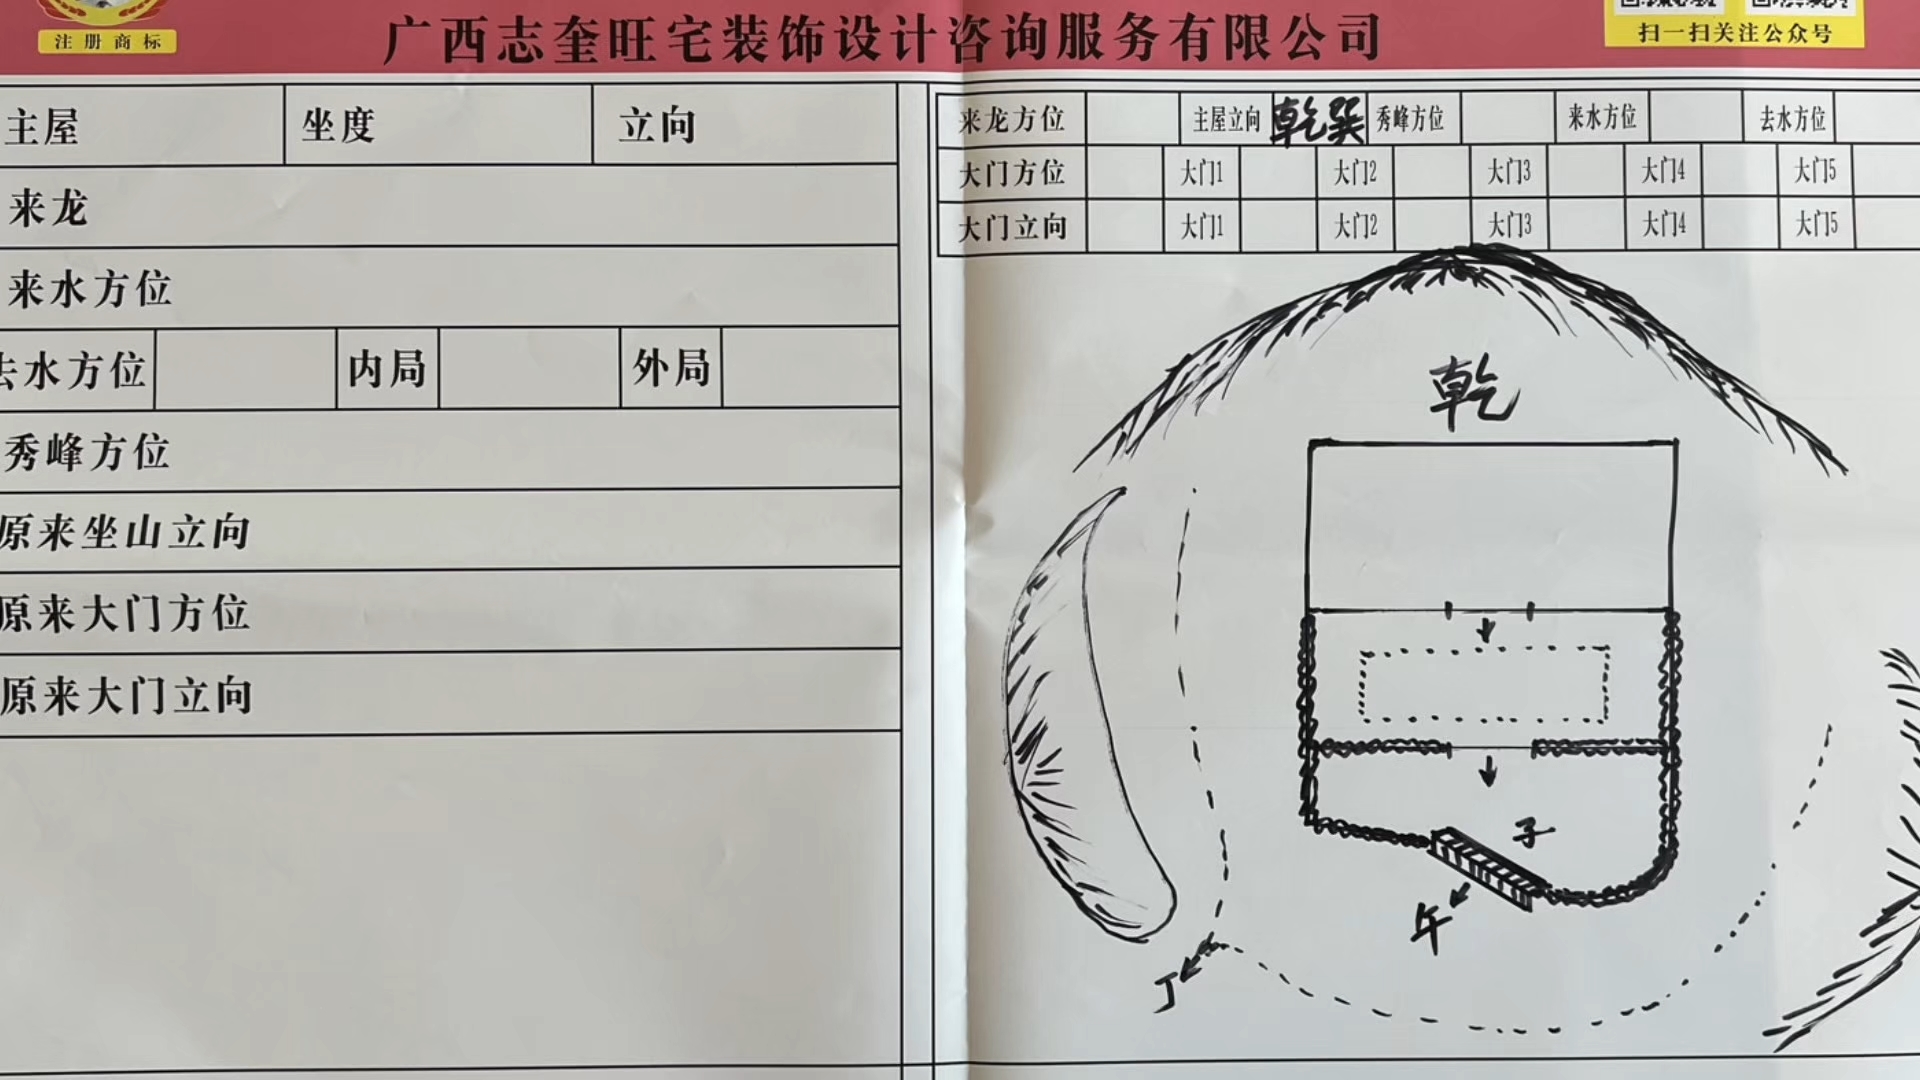 注册商标
广西志奎旺宅装饰设计咨询服务有限公司
扫一扫关注公众号
主屋 坐度 立向
来龙
来水方位
去水方位 内局 外局
秀峰方位
原来坐山立向
原来大门方位
原来大门立向
来龙方位 主屋立向 乾巽 秀峰方位 来水方位 去水方位
大门方位 大门1 大门2 大门3 大门4 大门5
大门立向 大门1 大门2 大门3 大门4 大门5
乾
子
午
丁